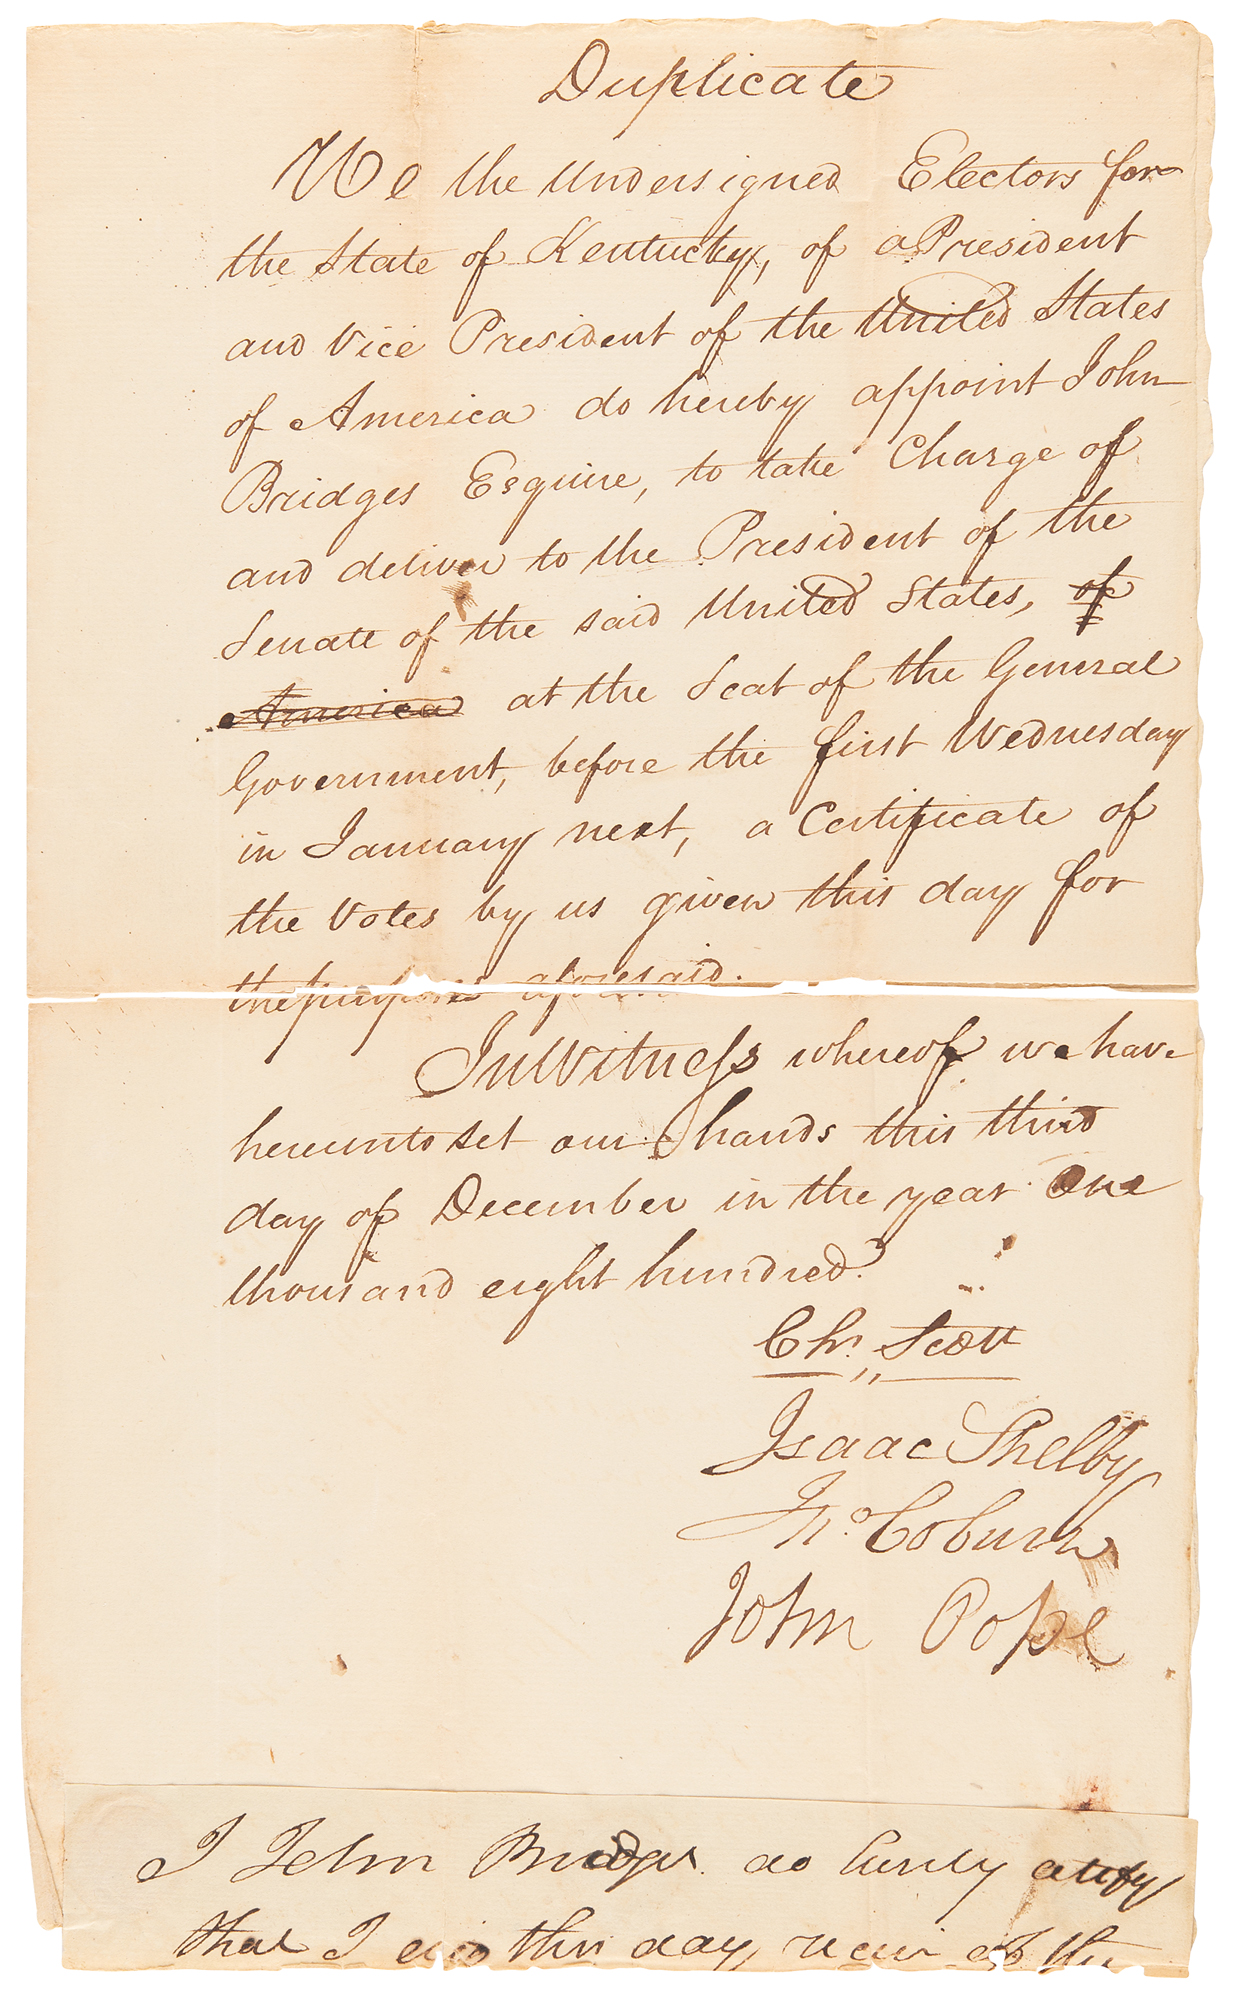 Duplicate
We the Undersigned Electors for
the State of Kentucky, of a President
and Vice President of the United States
of America do hereby appoint John
Bridges Esquire, to take Charge of
and deliver to the President of the
Senate of the said United States, of
America at the Seat of the General
Government, before the first Wednesday
in January next, a Certificate of
the Votes by us given this day for
the purpose aforesaid.
In Witness whereof we have
hereunto set our hands this third
day of December in the year One
thousand eight hundred.
Chs. Scott
Isaac Shelby
Jno. Coburn
John Pope
I John Bridges do hereby certify
that I did this day receive of the